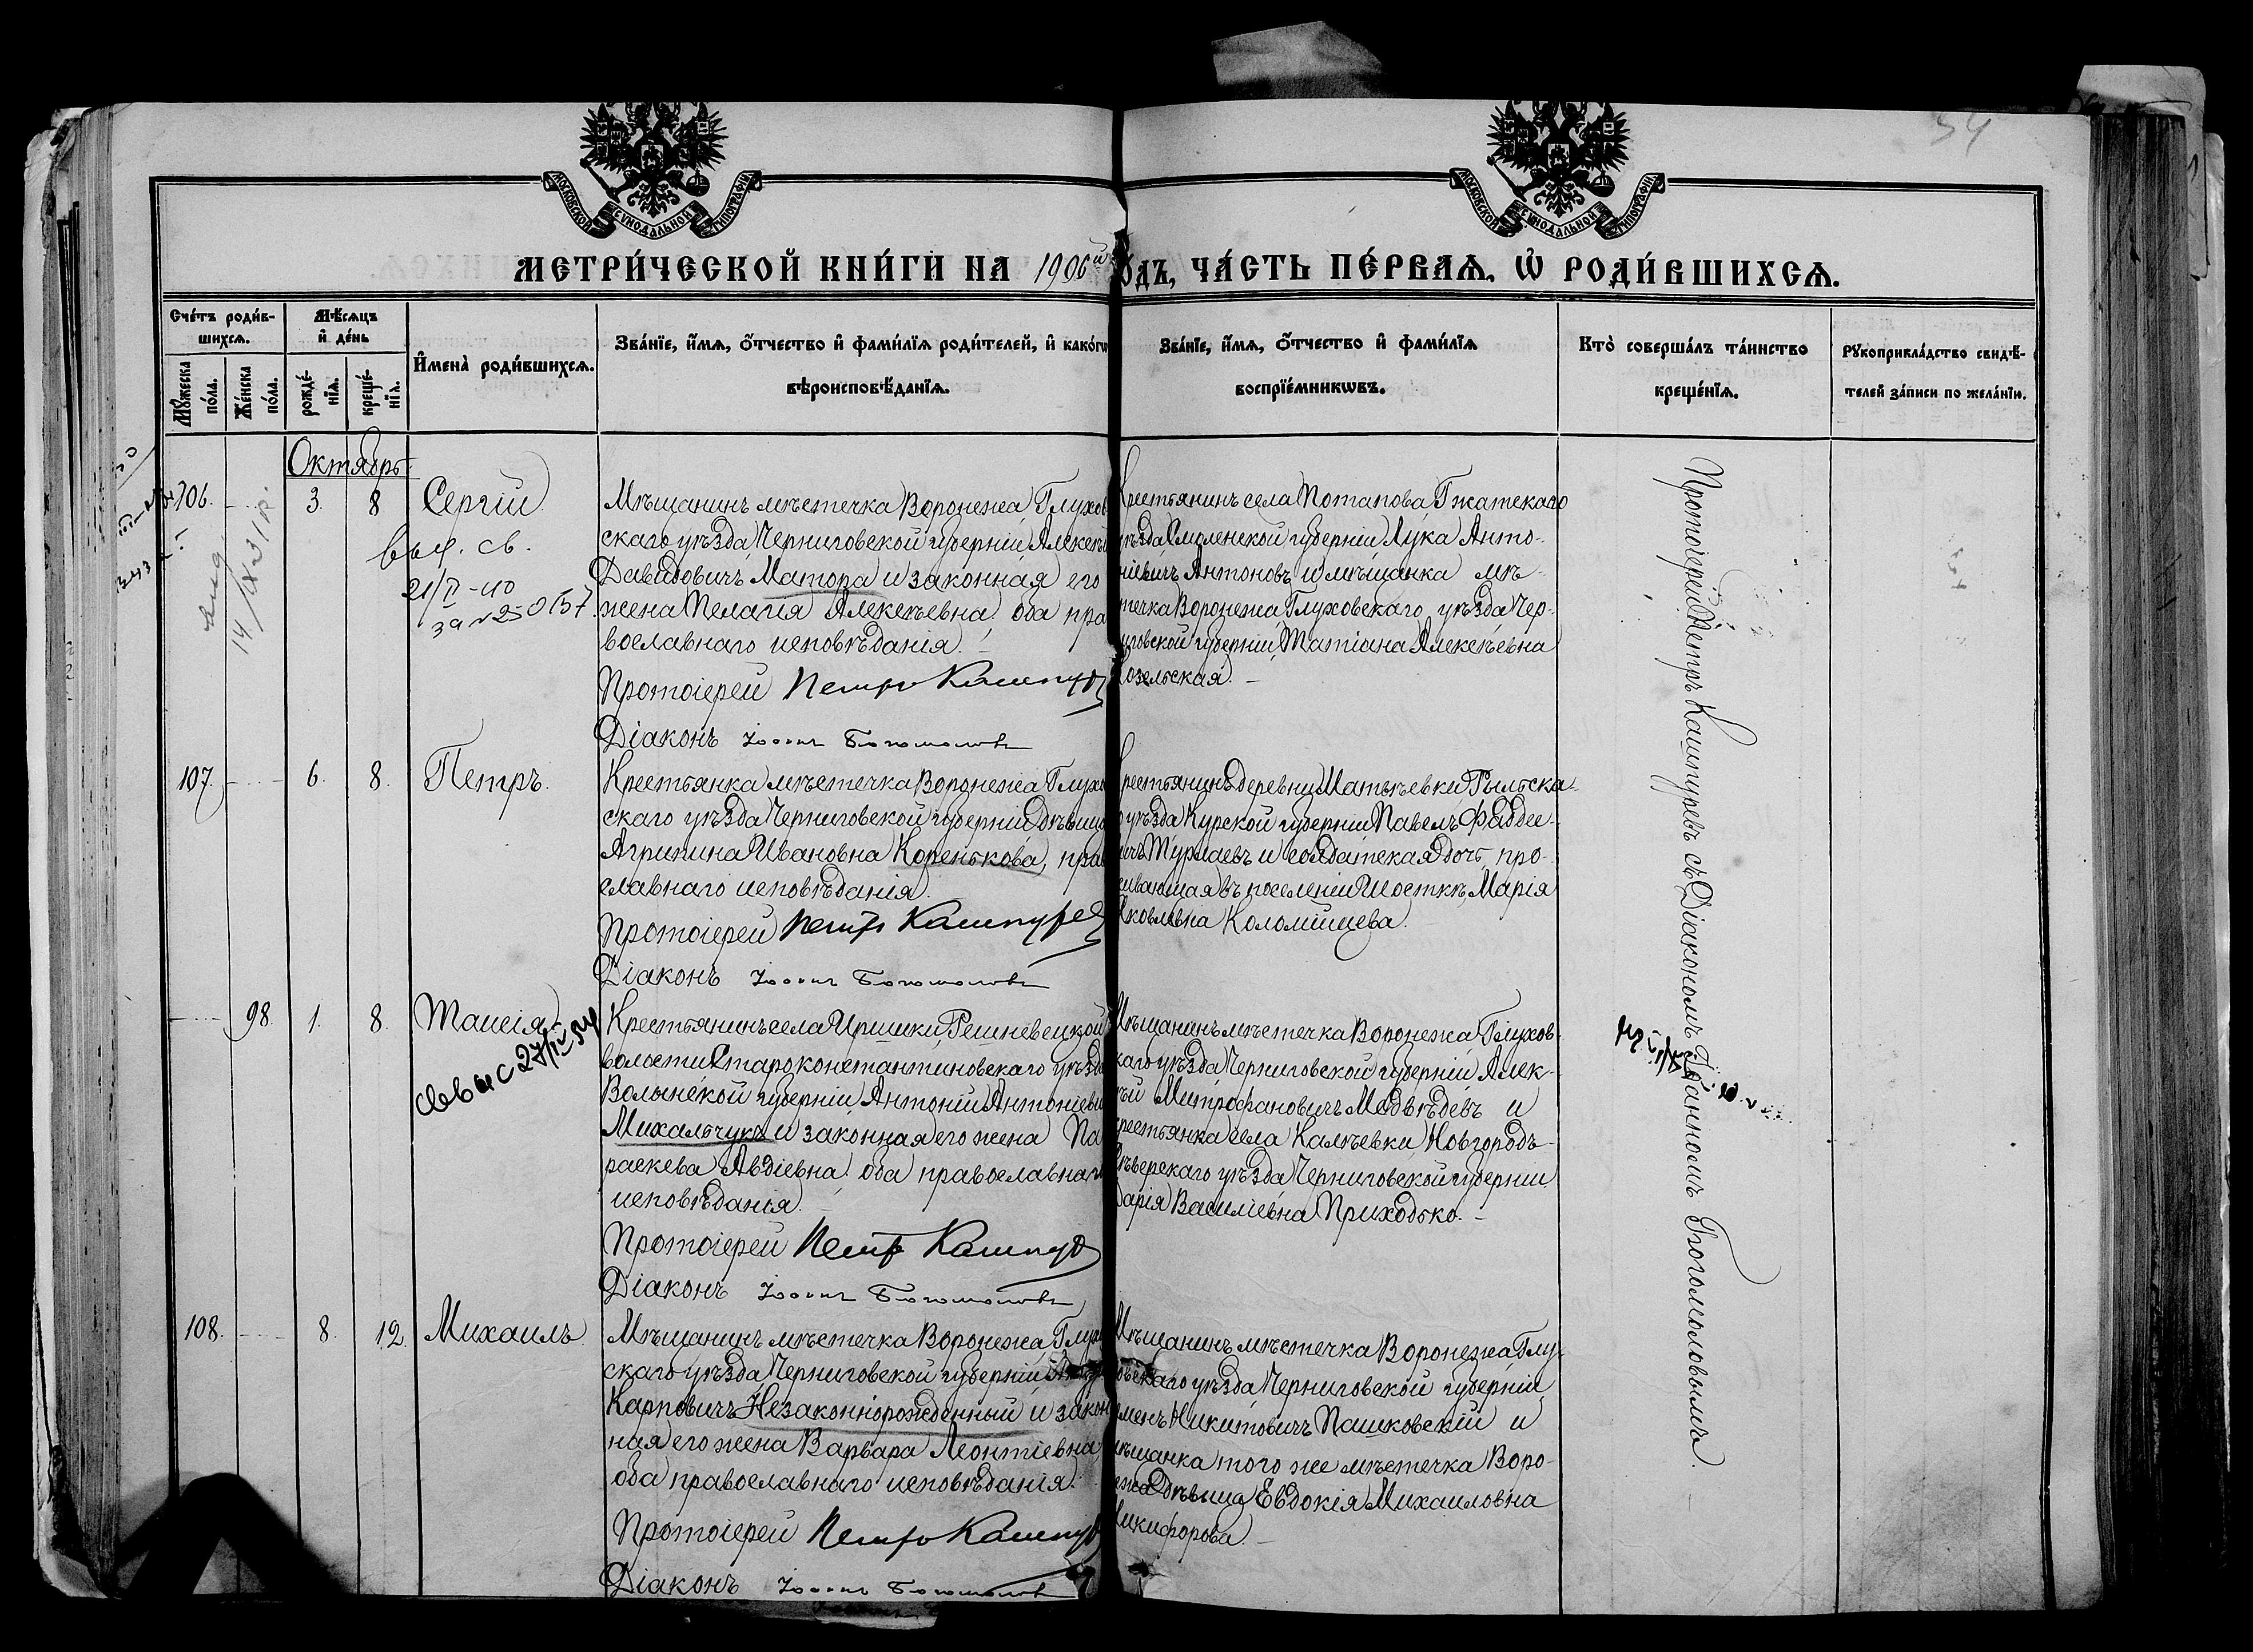 54
МОСКОВСКОЙ СѴНОДАЛЬНОЙ ТИПОГРАФІИ
МОСКОВСКОЙ СѴНОДАЛЬНОЙ ТИПОГРАФІИ
МЕТРИ́ЧЕСКОЙ КНИ́ГИ НА 1906й ГОДЪ, ЧА́СТЬ ПЕ́РВАѦ. Ѡ҆ РОДИ́ВШИХСѦ.
Сче́тъ роди́в-
шихсѧ.
Мꙋ́жеска по́ла.
Же́нска по́ла.
Мѣ́сѧцъ
и҆ де́нь
рожде́-
нїѧ.
креще́-
нїѧ.
И҆мена̀ роди́вшихсѧ.
Зва́нїе, и҆́мѧ, ѻ҆́тчество и҆ фами́лїѧ роди́телей, и҆ како́гѡ
вѣроисповѣ́данїѧ.
Зва́нїе, и҆́мѧ, ѻ҆́тчество и҆ фами́лїѧ
воспрїе́мникѡвъ.
Кто̀ соверша́лъ та́инство
креще́нїѧ.
Рꙋкоприкла́дство свидѣ́-
телей за́писи по жела́нїю.
Октябрь
106. 3. 8 Сергій
выд. св.
21/II-40
за № 250157.
14/IX 51 г.
Мѣщанинъ мѣстечка Воронежа, Глухов
скаго уѣзда Черниговской губерніи, Алексѣй
Давидовичъ Матора и законная его
жена Пелагія Алексѣевна оба пра
вославнаго исповѣданія.
Протоіерей Петръ Кашпур
Діаконъ Іоаннъ Богомоловъ
Крестьянинъ села Потапова Гжатскаго
уѣзда Смоленской губерніи Лука Анто-
ніевичъ Антоновъ и мѣщанка мѣ-
стечка Воронежа, Глуховскаго уѣзда Чер-
ниговской губерніи, Татіана Алексѣевна
Козельская.
107. 6. 8. Петръ.
Крестьянка мѣстечка Воронежа Глухо
скаго уѣзда Черниговской губерніи дѣвица
Агрипина Ивановна Коренькова, прав
славнаго исповѣданія.
Протоіерей Петръ Кашпурев
Діаконъ Іоаннъ Богомоловъ
Крестьянинъ деревни Матвѣевки Рыльска-
го уѣзда Курской губерніи Павелъ Фаддее-
вичъ Турлаевъ и солдатская дочь, про-
живающая въ поселеніи Шосткѣ Марія
Яковлевна Коломійцева.
98. 1. 8. Таисія
св выс 27/IV 54
Крестьянинъ села Иршики, Решневецкой
волости Староконстантиновскаго уѣзда
Волынской губерніи, Антоній Антоніеви
Михальчукъ и законная его жена Па
раскева Авдіевна оба православнаго
исповѣданія.
Протоіерей Петръ Кашпур
Діаконъ Іоаннъ Богомоловъ
Мѣщанинъ мѣстечка Воронежа, Глухов-
скаго уѣзда Черниговской губерніи, Алек-
сѣй Митрофановичъ Медвѣдевъ и
крестьянка села Калѣевки Новгородъ-
Сѣверскаго уѣзда Черниговской губерніи
Дарія Василіевна Приходько.
108. 8. 12. Михаилъ
Мѣщанинъ мѣстечка Воронежа Глухо
скаго уѣзда Черниговской губерніи
Карповичъ Незаконнорожденный и закон
ная его жена Варвара Леонтіевна,
оба православнаго исповѣданія.
Протоіерей Петръ Кашпур
Діаконъ Іоаннъ Богомолов
Мѣщанинъ мѣстечка Воронежа Глу-
ховскаго уѣзда Черниговской губерніи
Никитовичъ Пашковскій и
мѣщанка того же мѣстечка Воро-
нежа дѣвица Евдокія Михаиловна
Никифорова.
Протоіерей Петръ Кашпуревъ съ Діакономъ Іоанномъ Богомоловымъ.